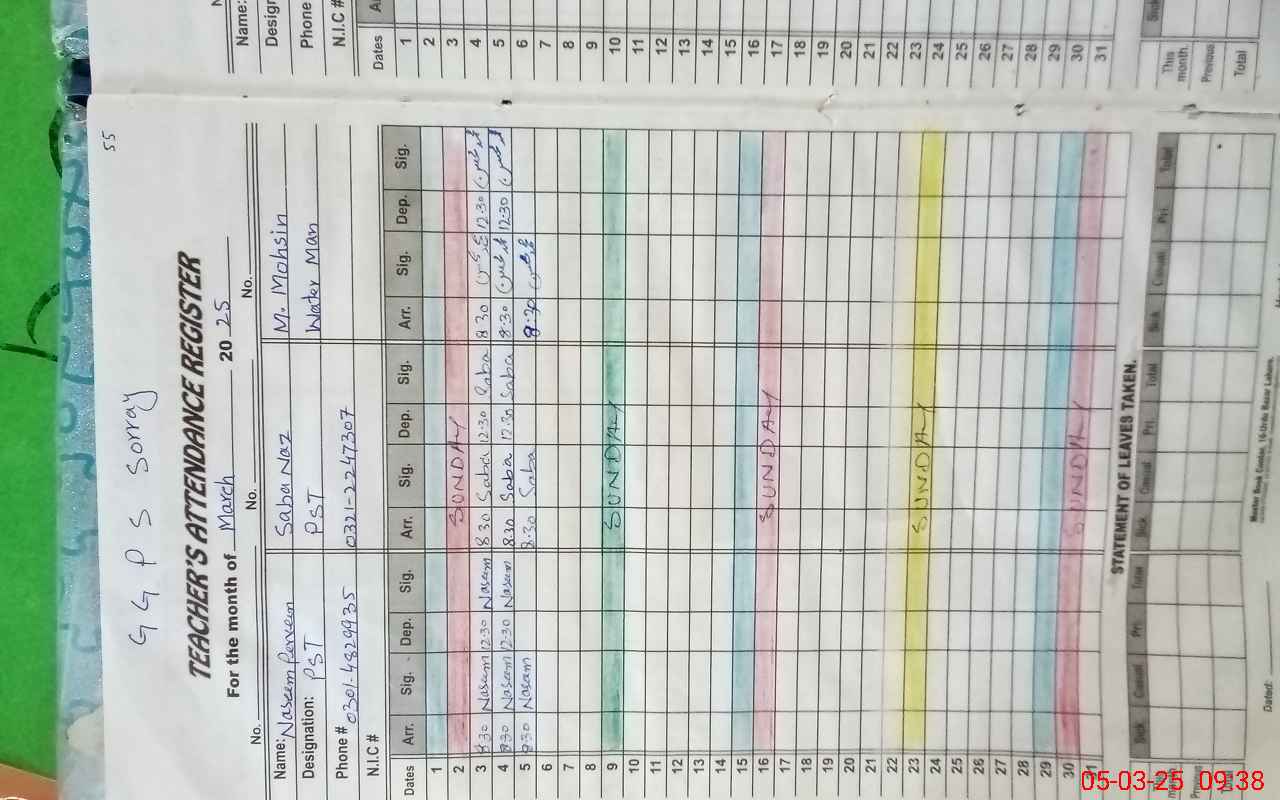 55
G G P S Sorray
TEACHER'S ATTENDANCE REGISTER
For the month of March 20 25
No. No. No.
Name: Naseem Perveen Saba Naz M. Mohsin
Designation: PST PST Water Man
Phone # 0301-4829935 0321-2247307
N.I.C #
Dates Arr. Sig. Dep. Sig. Arr. Sig. Dep. Sig. Arr. Sig. Dep. Sig.
1
2 SUNDAY
3 8:30 Naseem 12:30 Naseem 8:30 Saba 12:30 Saba 8:30 12:30
4 8:30 Naseem 12:30 Naseem 8:30 Saba 12:30 Saba 8:30 12:30
5 8:30 Nasam 8:30 Saba 8:30
6
7
8
9 SUNDAY
10
11
12
13
14
15
16 SUNDAY
17
18
19
20
21
22
23 SUNDAY
24
25
26
27
28
29
30 SUNDAY
31
STATEMENT OF LEAVES TAKEN.
Sick Casual Pri. Total Sick Casual Pri. Total Sick Casual Pri. Total
Dated:
Name:
Phone
N.I.C #
Dates
1
2
3
4
5
6
7
8
9
10
11
12
13
14
15
16
17
18
19
20
21
22
23
24
25
26
27
28
29
30
31
This month.
Previous
Total
05-03-25 09:38